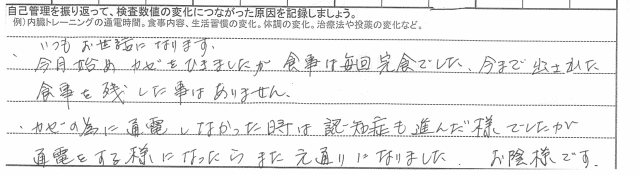 自己管理を振り返って、検査数値の変化につながった原因を記録しましょう。
例）内臓トレーニングの通電時間。食事内容、生活習慣の変化。体調の変化。治療法や投薬の変化など。
いつもお世話になります。
・今月始めカゼをひきましたが食事は毎回完食でした、今まで出された
食事を残した事はありません、
・カゼの為に通電しなかった時は認知症も進んだ様でしたが
通電をする様になったらまた元通りになりました。お陰様です。